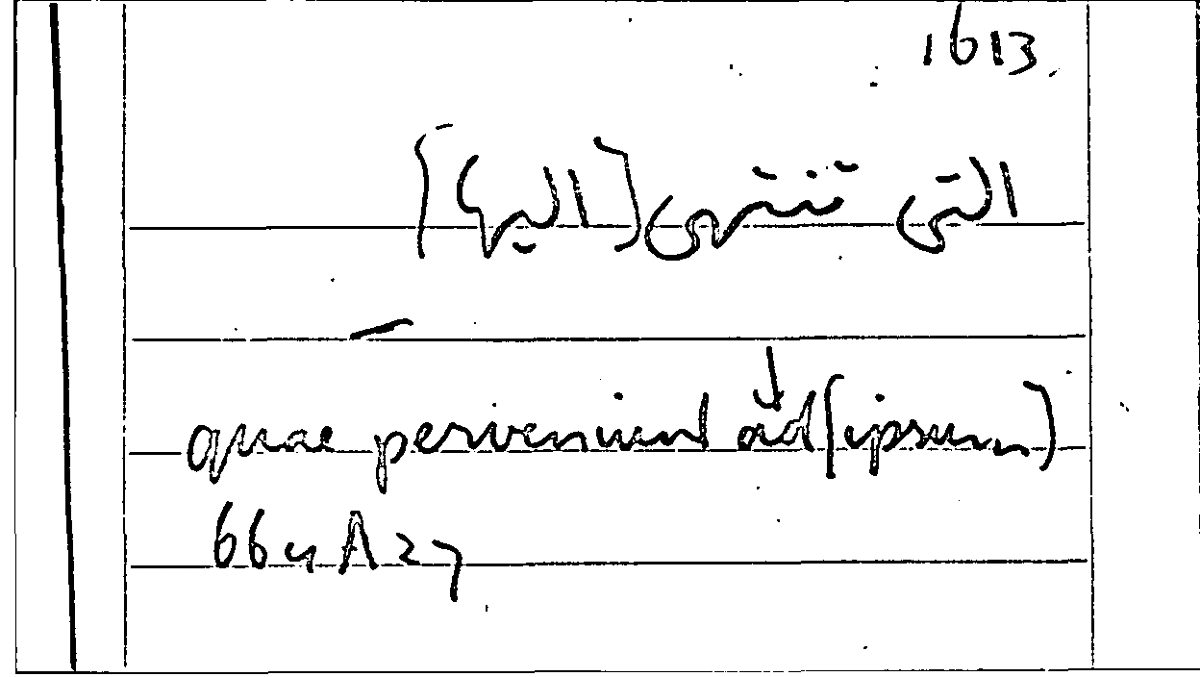 1613
التى تنتهى [اليها]
quae perveniunt ad [ipsum]
664A27